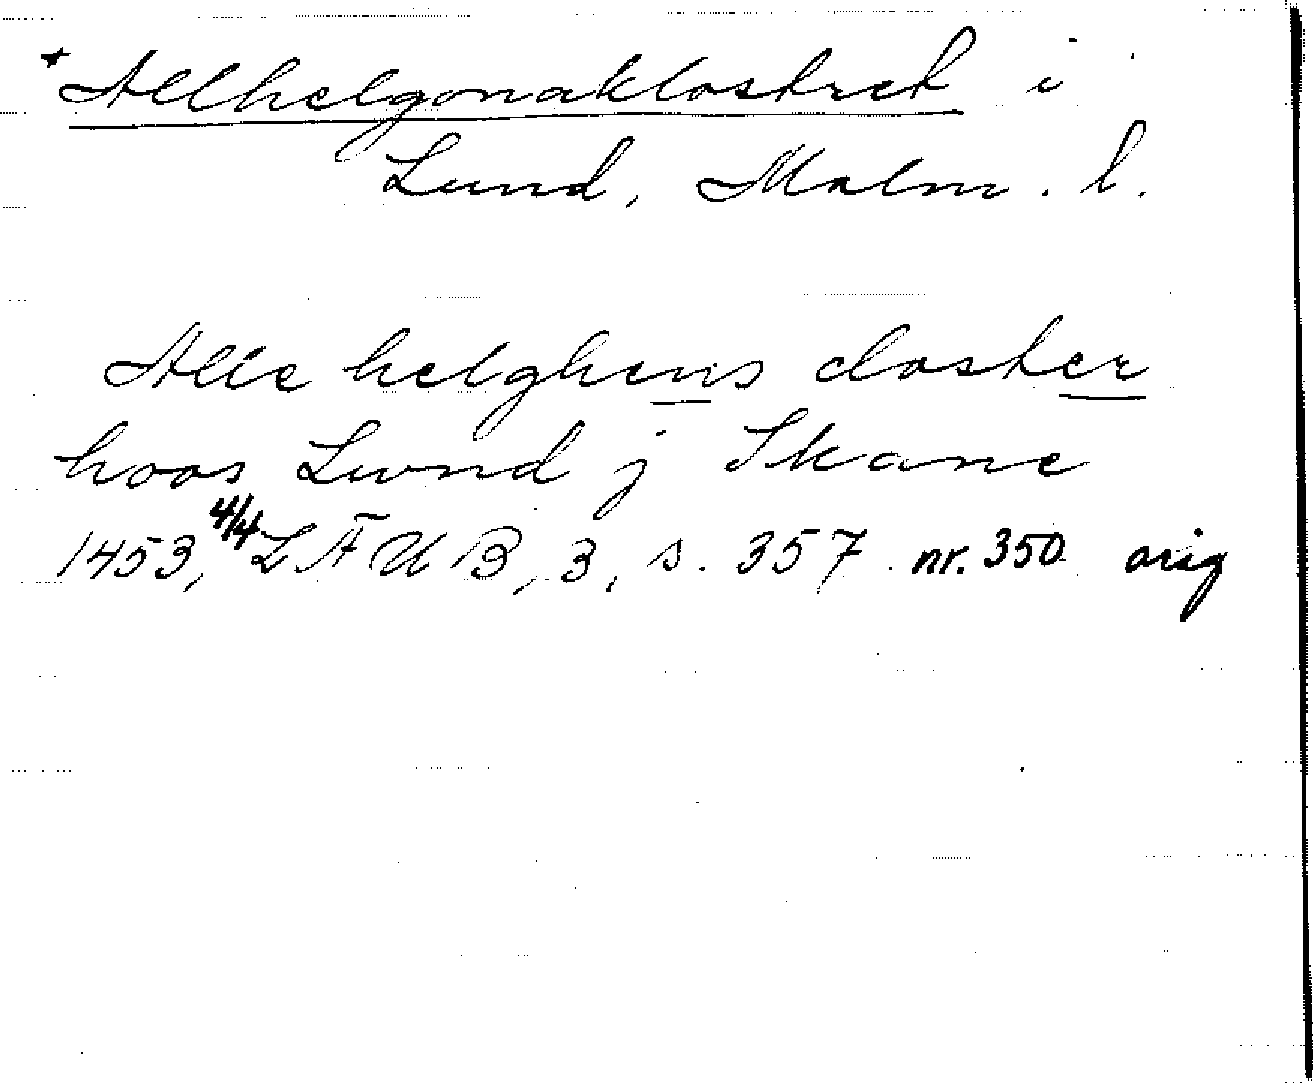 *Allhelgonaklostret i
Lund, Malm. l.
Alle helghens closter
hoos Lwnd j Skane
1453, 4/4 LÄUB, 3, s. 357 nr. 350 orig